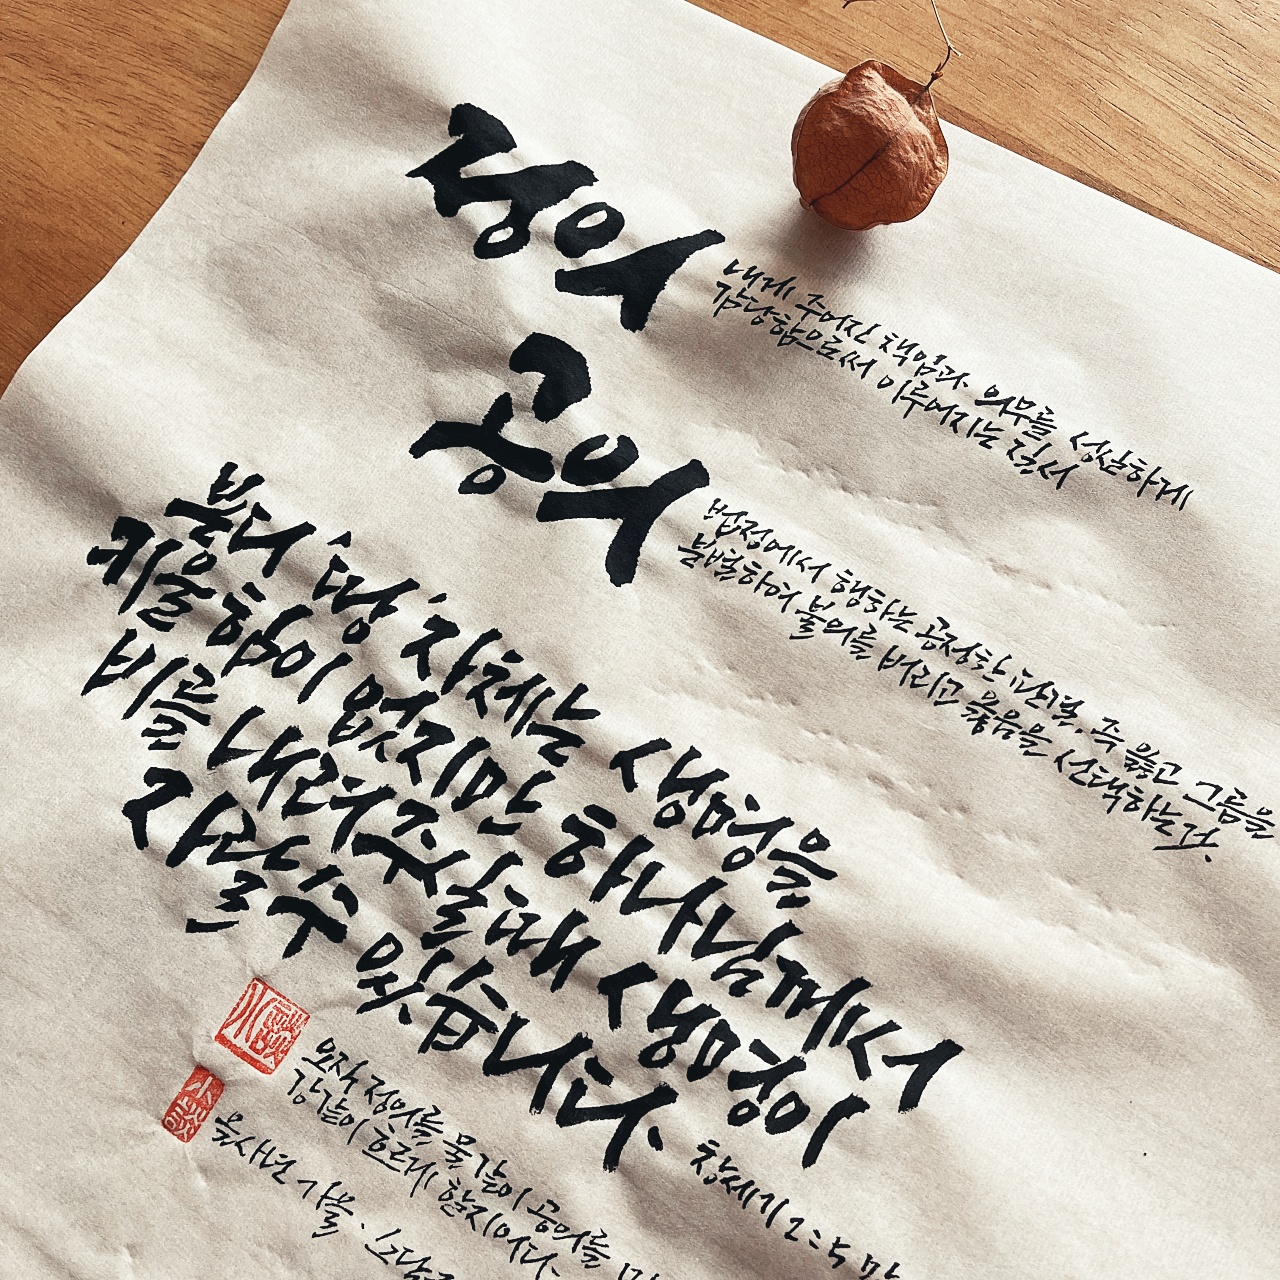 정의
내게 주어진 책임과 의무를 성실하게
감당함으로써 이루어지는 질서
공의
법정에서 행하는 공정한 판결. 즉 옳고 그름을
분별하여 불의를 버리고 옳음을 선택하는것.
본디 '땅' 자체는 생명을
키울 힘이 없지만 하나님께서
비를 내려주실때 생명이
자랄 수 있습니다.
창세기 2:5 말
오직 정의를 물같이 공의를 마
강같이 흐르게 할지어다.
을사년 가을. 소담
小談
小談